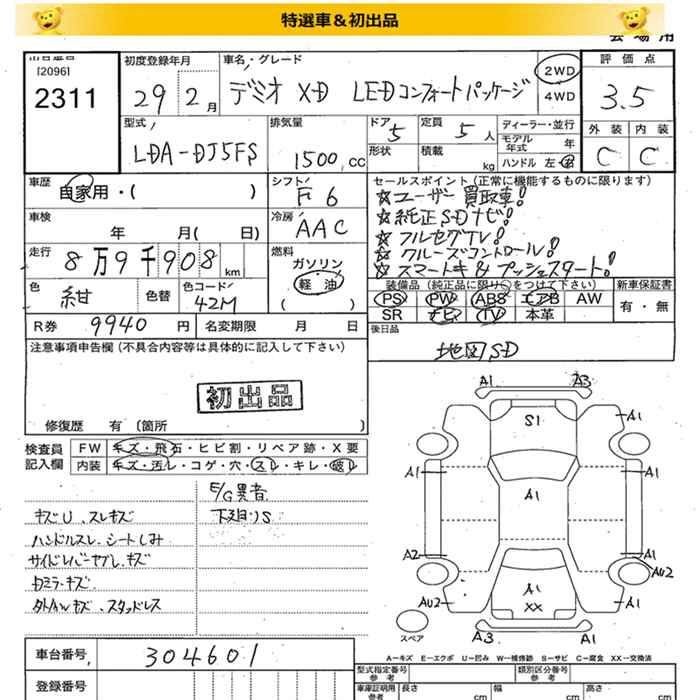 特選車&初出品
出品番号 初度登録年月 車名・グレード 評価点
[2096]
2311 29 2月 デミオ XD LEDコンフォートパッケージ 2WD 4WD 3.5
型式 排気量 ドア 定員 ディーラー・並行 外装 内装
LDA-DJ5FS 1500cc 5 5人 モデル年式 年 C C
形状 積載 kg ハンドル 左・右
車歴 自家用・( ) シフト F6 セールスポイント(正常に機能するものに限ります)
☆ユーザー買取車!
車検 年 月( 日) 冷房 AAC ☆純正SDナビ!
☆フルセグTV!
走行 8万9千908km 燃料 ガソリン 軽油 ( ) ☆クルーズコントロール!
☆スマートキー&プッシュスタート!
色 紺 色替 色コード 42M 装備品(純正品に限り○をつけて下さい) 新車保証書
PS PW ABS エアB AW 有・無
R券 9940円 名変期限 月 日 SR ナビ TV 本革
注意事項申告欄(不具合内容等は具体的に記入して下さい) 後日品
地図SD
初出品
修復歴 有 〔箇所 〕
検査員記入欄 FW キズ・飛石・ヒビ割・リペア跡・X要
内装 キズ・汚レ・コゲ・穴・スレ・キレ・破レ
E/G異音
キズU、スレキズ 下廻りS
ハンドルスレ、シートしみ
サイドレバーヤブレ、キズ
カミラーキズ
スタッドレス
A1 A3
S1 A1
A1 A1 A1
A2 A1
A1 XX AU2
AU2 A1
A3 A1
スペア
A-キズ E-エクボ U-凹み W-補修跡 S-サビ C-腐食 XX-交換済
車台番号 304601 型式指定番号 参考 類別区分番号 参考
登録番号 車庫証明用 参考 長さ cm 幅 cm 高さ cm